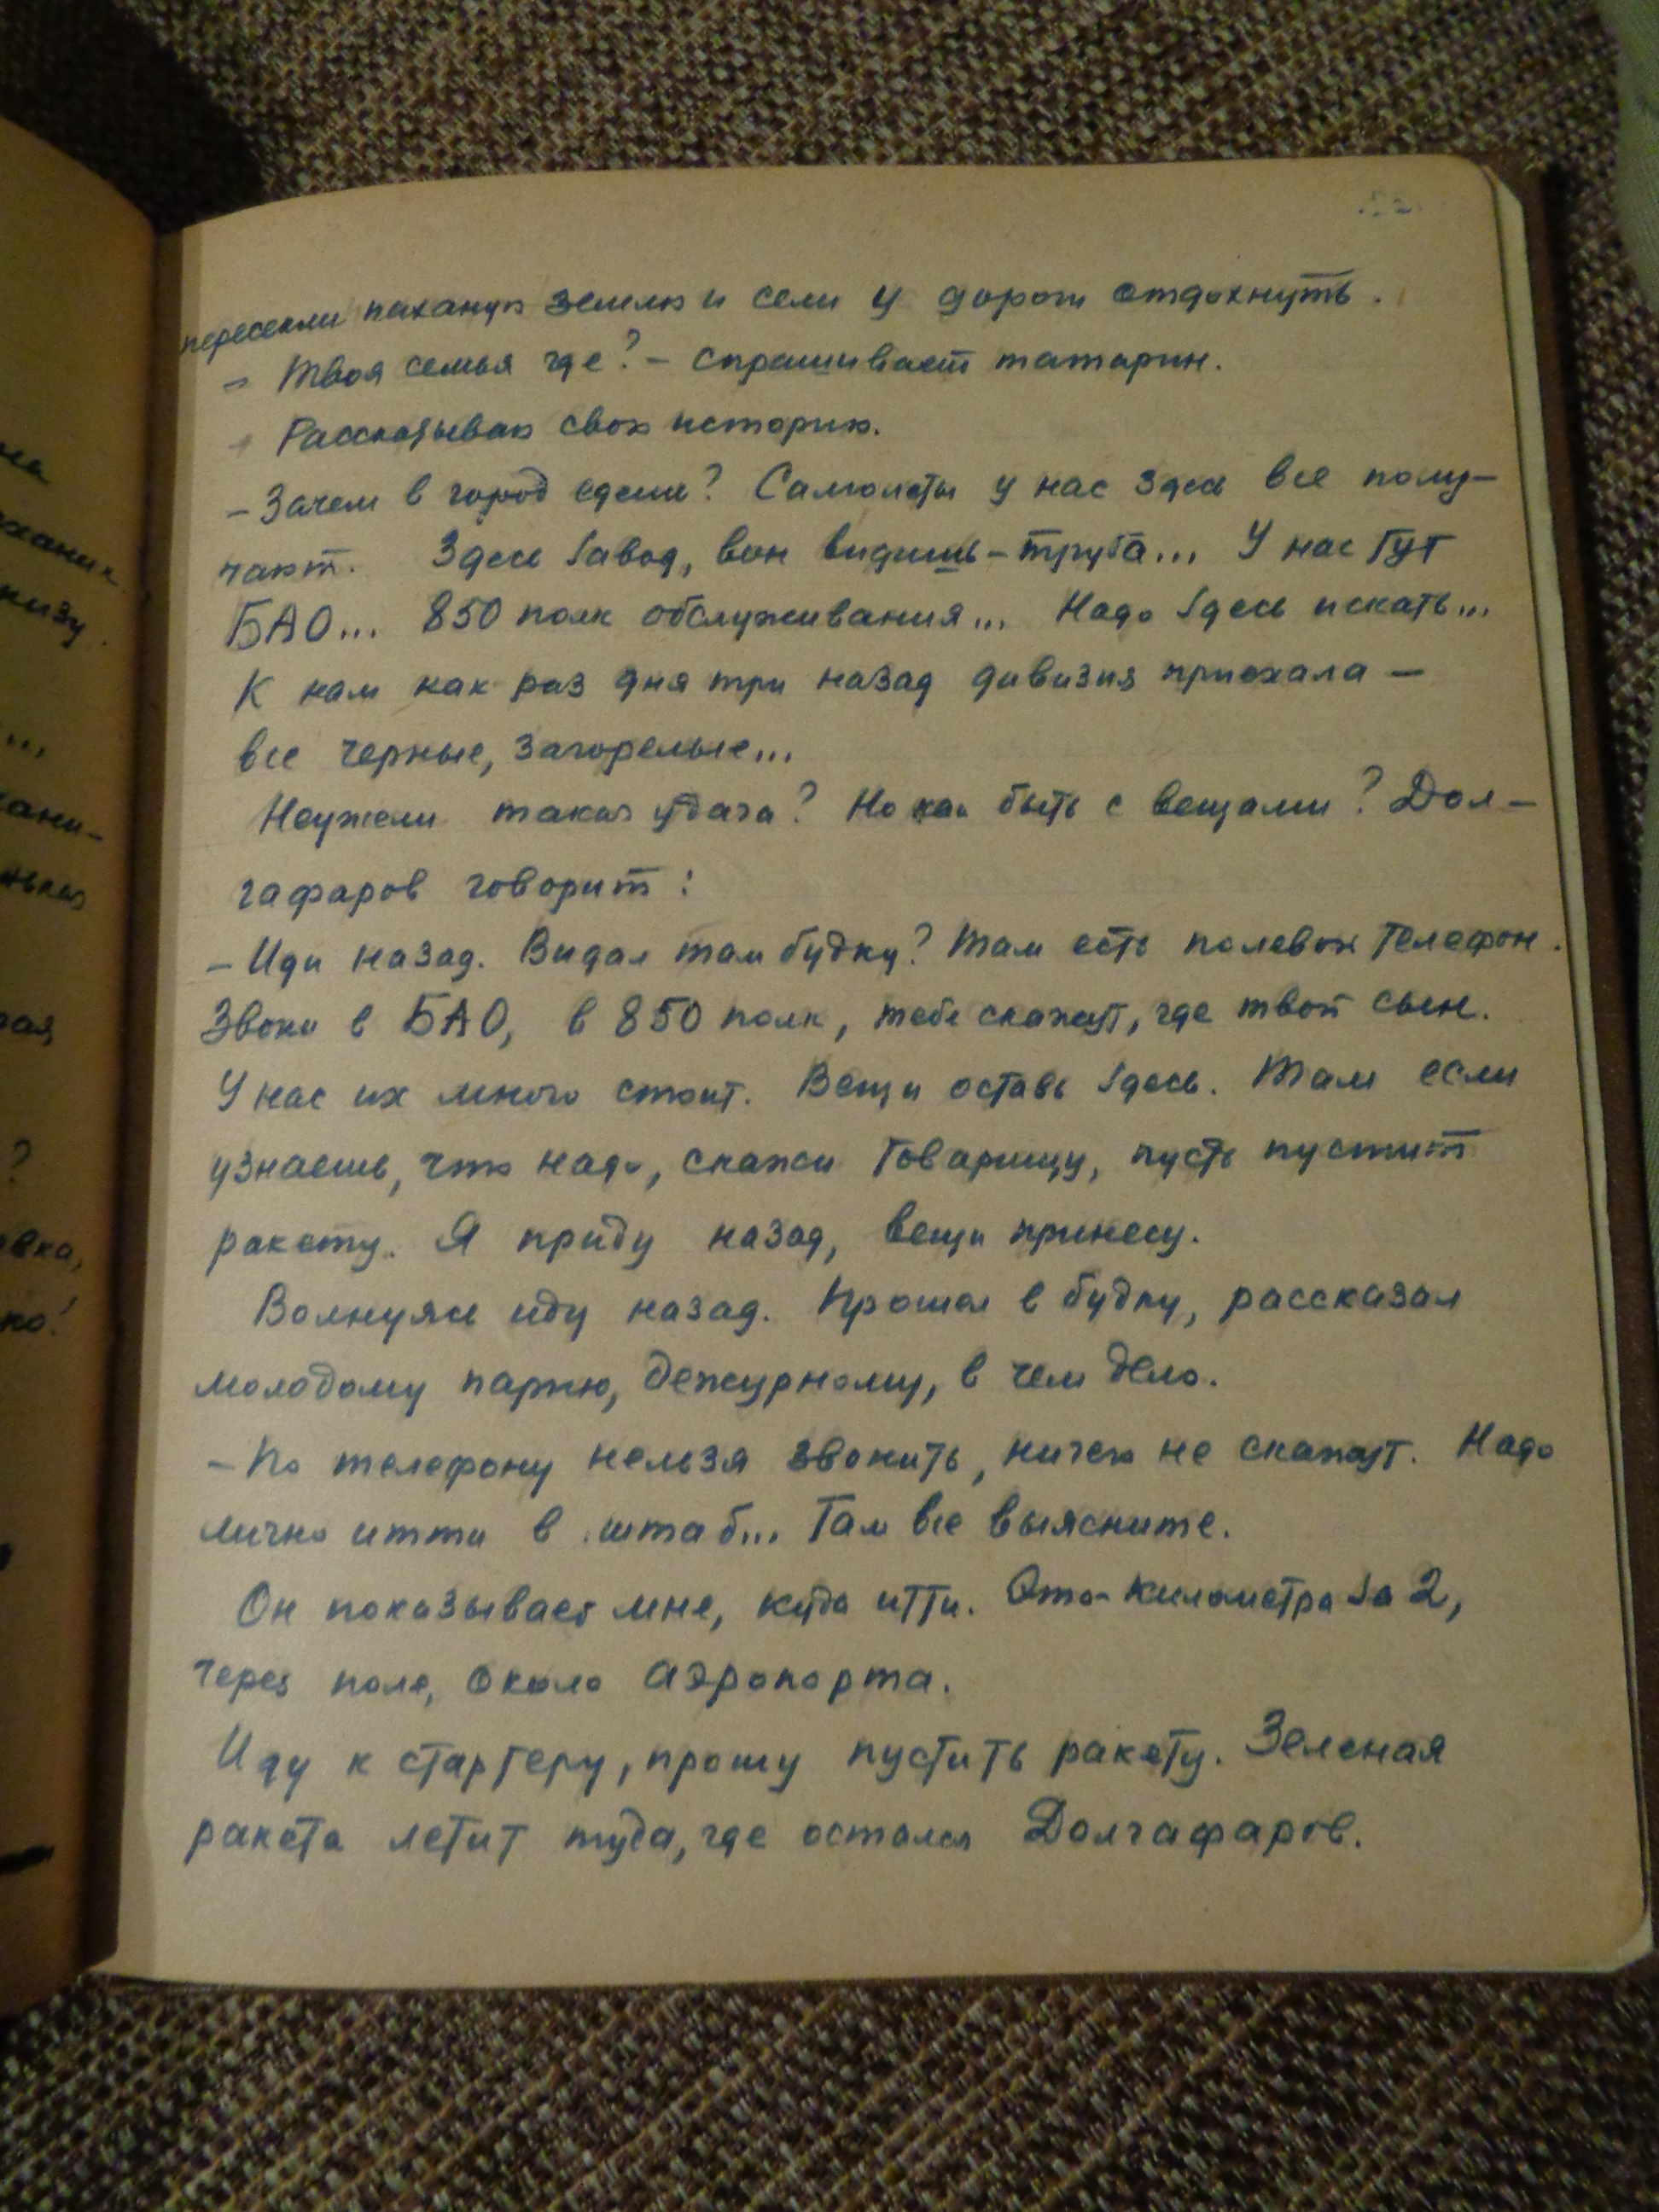 пересекли паханую землю и сели у дороги отдохнуть.
- Твоя семья где? - спрашивает татарин.
Рассказываю свою историю.
- Зачем в город едешь? Самолеты у нас здесь все полу-
чают. Здесь завод, вон видишь - труба... У нас тут
БАО... 850 полк обслуживания... Надо здесь искать...
К нам как раз дня три назад дивизия приехала -
все черные, загорелые...
Неужели такая удача? Но как быть с вещами? Дол-
гафаров говорит:
- Иди назад. Видал там будку? Там есть полевой телефон.
Звони в БАО, в 850 полк, тебе скажут, где твой сын.
У нас их много стоит. Вещи оставь здесь. Там если
узнаешь, что надо, скажи товарищу, пусть пустит
ракету. Я приду назад, вещи принесу.
Волнуясь иду назад. Прошел в будку, рассказал
молодому парню, дежурному, в чем дело.
- По телефону нельзя звонить, ничего не скажут. Надо
лично итти в штаб... Там все выясните.
Он показывает мне, куда итти. Это километра за 2,
через поле, около аэропорта.
Иду к стартеру, прошу пустить ракету. Зеленая
ракета летит туда, где остался Долгафаров.
ала
ханик
низу.
...
ани-
нькая
рая
?
овка,
но!